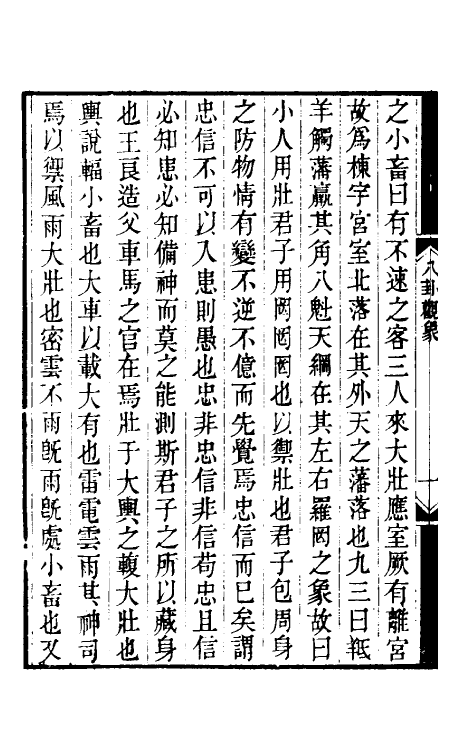 之小畜曰有不速之客三人來大壯應室厥有離宮
故爲棟宇宮室北落在其外天之藩落也九三曰羝
羊觸藩羸其角八魁天綱在其左右羅罔之象故曰
小人用壯君子用罔罔罔也以禦壯也君子包周身
之防物情有變不逆不億而先覺焉忠信而已矣謂
忠信不可以入患則愚也忠非忠信非信苟忠且信
必知患必知備神而莫之能測斯君子之所以藏身
也王良造父車馬之官在焉壯于大輿之輹大壯也
輿說輻小畜也大車以載大有也雷電雲雨其神司
焉以禦風雨大壯也密雲不雨旣雨旣處小畜也又
八卦觀象
一